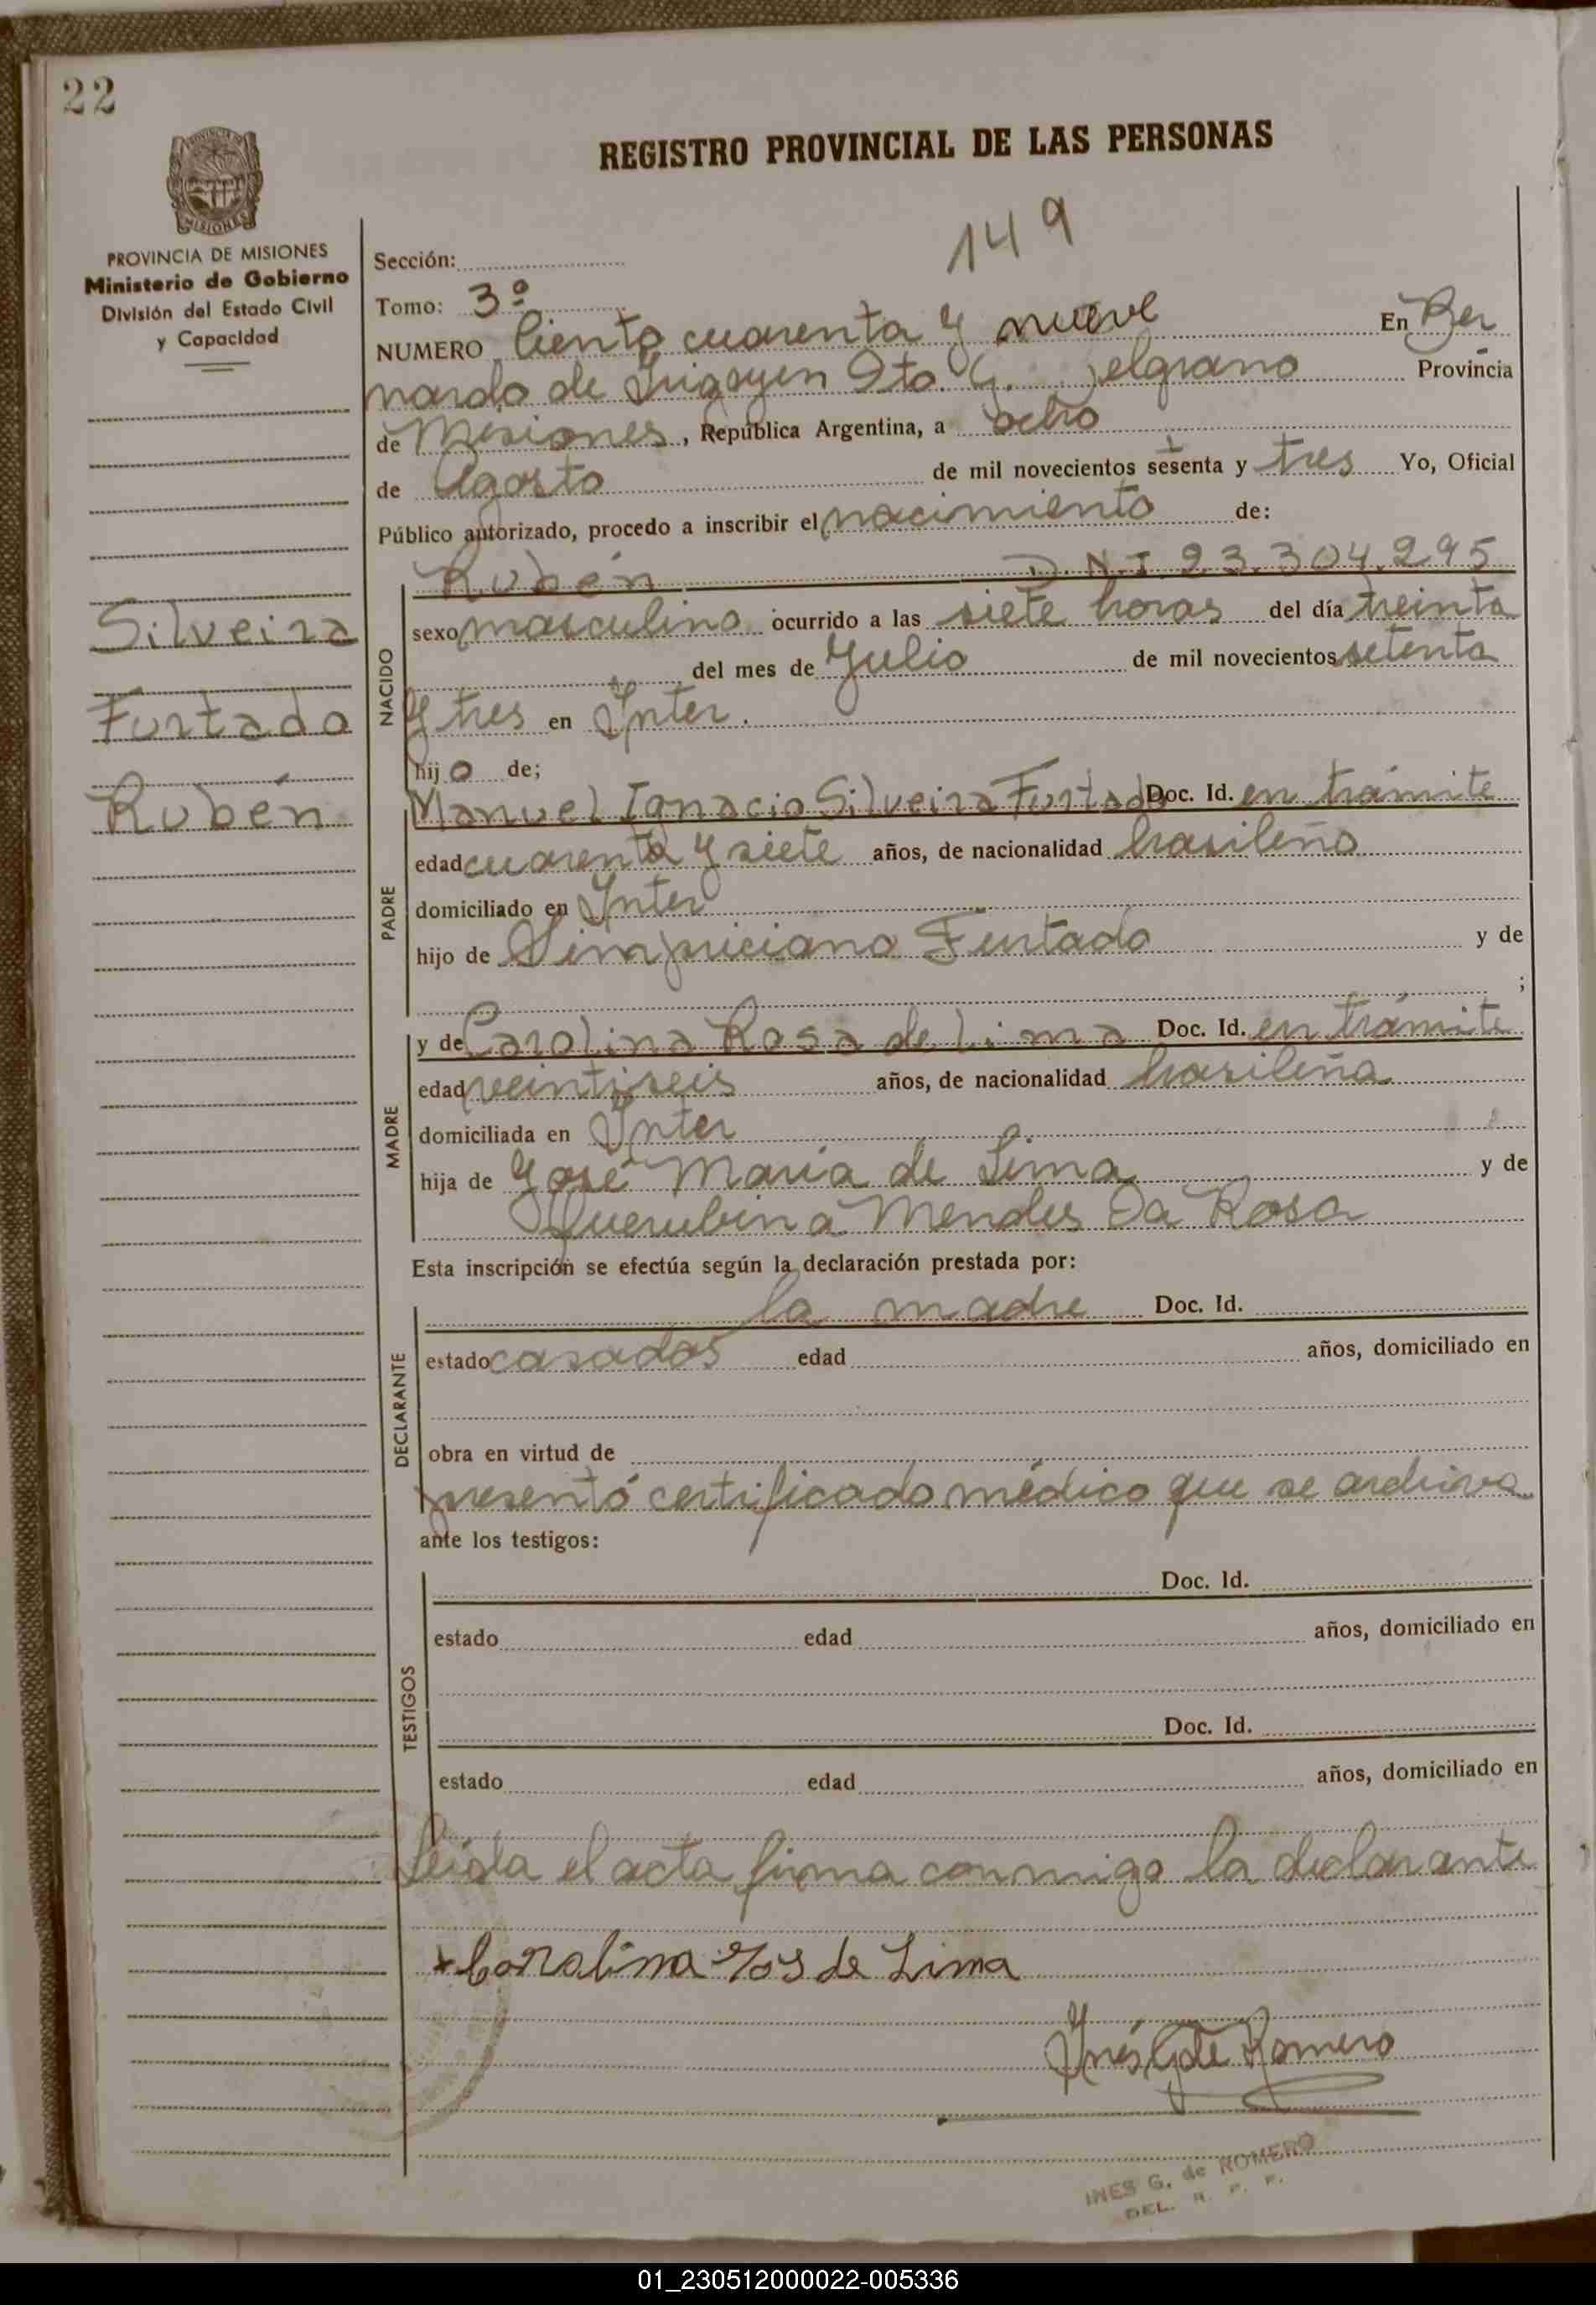 22
REGISTRO PROVINCIAL DE LAS PERSONAS
PROVINCIA DE MISIONES
Ministerio de Gobierno
División del Estado Civil
y Capacidad
149
Sección:
Tomo: 3º
NUMERO Ciento cuarenta y nueve En Ber
nardo de Irigoyen Dto. G. Belgrano Provincia
de Misiones, República Argentina, a ocho
de Agosto de mil novecientos setenta y tres Yo, Oficial
Público autorizado, procedo a inscribir el nacimiento de:
Rubén D.N.I. 23.304.295
Silveira
Furtado
Rubén
NACIDO
sexo masculino ocurrido a las siete horas del día treinta
del mes de Julio de mil novecientos setenta
y tres en Inter.
hijo de;
PADRE
Manuel Ignacio Silveira Furtado Doc. Id. en trámite
edad cuarenta y siete años, de nacionalidad brasileña
domiciliado en Inter
hijo de Simpriciano Furtado y de
;
MADRE
y de Carolina Rosa de Lima Doc. Id. en trámite
edad veintiseis años, de nacionalidad brasileña
domiciliada en Inter
hija de José María de Lima y de
Querubina Mendes Da Rosa
Esta inscripción se efectúa según la declaración prestada por:
DECLARANTE
la madre Doc. Id.
estado casados edad años, domiciliado en
obra en virtud de
presentó certificado médico que se archiva
ante los testigos:
TESTIGOS
Doc. Id.
estado edad años, domiciliado en
Doc. Id.
estado edad años, domiciliado en
Leída el acta firma conmigo la declarante
Carolina de Lima
Inés G de Romero
INES G. de ROMERO
DEL. R. P. P.
01_230512000022-005336